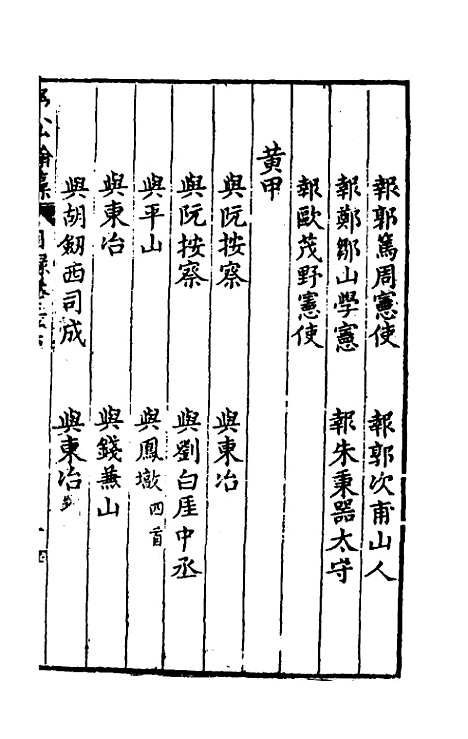 報郭篤周憲使　報郭次甫山人
報鄭鄒山學憲　報朱秉器太守
報歐茂野憲使
黃甲
與阮按察　與東冶
與阮按察　與劉白厓中丞
與平山　與鳳墩四首
與東冶　與錢蒹山
與胡劒西司成　與東冶